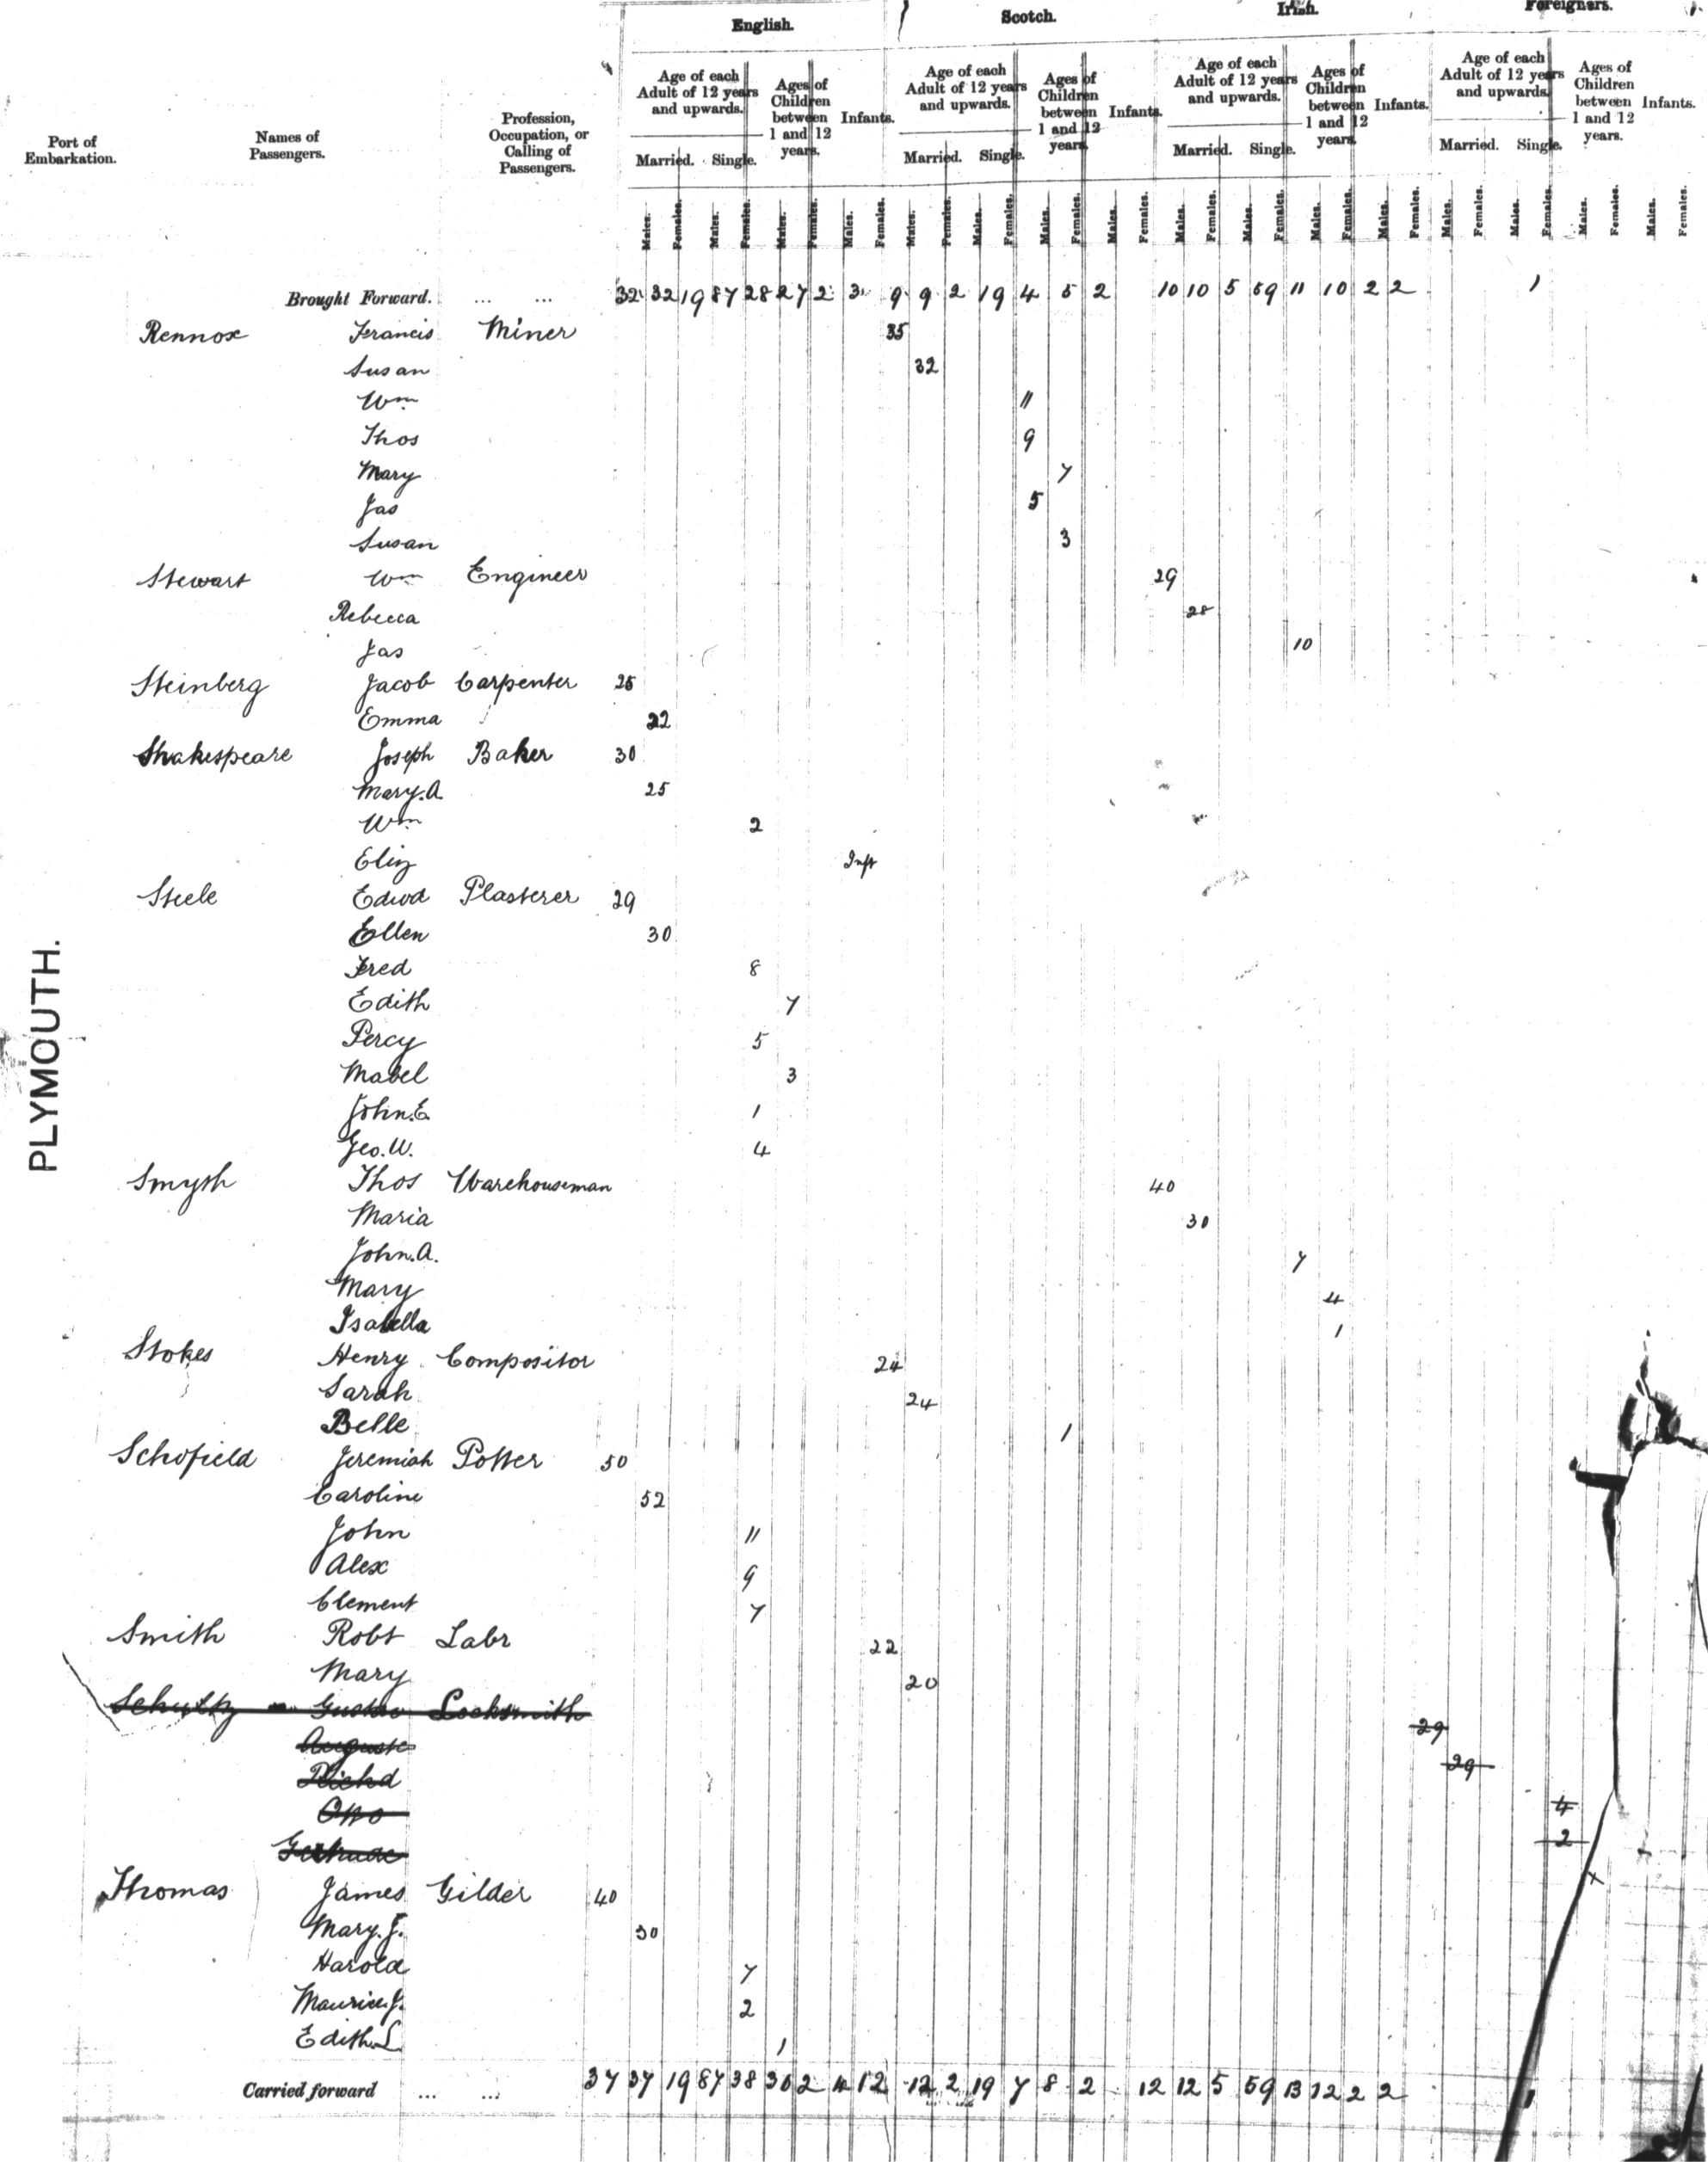 English. Scotch. Irish. Foreigners.
Port of Embarkation. Names of Passengers. Profession, Occupation, or Calling of Passengers.
Age of each Adult of 12 years and upwards. Ages of Children between 1 and 12 years. Infants. Age of each Adult of 12 years and upwards. Ages of Children between 1 and 12 years. Infants. Age of each Adult of 12 years and upwards. Ages of Children between 1 and 12 years. Infants. Age of each Adult of 12 years and upwards. Ages of Children between 1 and 12 years. Infants.
Married. Single. Married. Single. Married. Single. Married. Single.
Males. Females. Males. Females. Males. Females. Males. Females. Males. Females. Males. Females. Males. Females. Males. Females. Males. Females. Males. Females. Males. Females. Males. Females. Males. Females. Males. Females. Males. Females. Males. Females.
Brought Forward. ... ... 32 32 19 87 28 27 2 3 9 9 2 19 4 5 2 10 10 5 59 11 10 2 2 1
Rennox Francis Miner 35
Susan 32
Wm 11
Thos 9
Mary 7
Jas 5
Susan 3
Stewart Wm Engineer 29
Rebecca 28
Jas 10
Steinberg Jacob Carpenter 25
Emma 22
Shakespeare Joseph Baker 30
Mary.A 25
Wm 2
Eliz Inft
Steele Edwd Plasterer 29
Ellen 30
Fred 8
Edith 7
Percy 5
Mabel 3
John.E. 1
Geo.W. 4
PLYMOUTH.
Smyth Thos Warehouseman 40
Maria 30
John.A. 7
Mary 4
Isabella 1
Stokes Henry Compositor 24
Sarah 24
Belle 1
Schofield Jeremiah Potter 50
Caroline 52
John 11
Alex 9
Clement 7
Smith Robt Labr 22
Mary 20
Schultz Gustav Locksmith 29
Auguste 29
Richd 4
Otto 2
Gertrude
Thomas James Gilder 40
Mary.J. 30
Harold 7
Maurice.J. 2
Edith.L 1
Carried forward ... ... 37 37 19 87 38 30 2 4 12 12 2 19 7 8 2 12 12 5 59 13 12 2 2 1